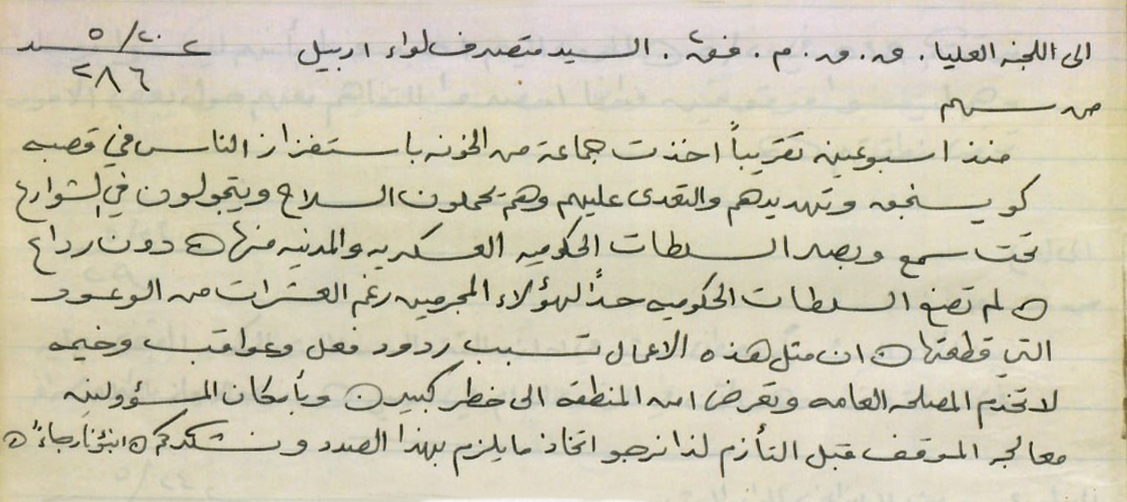 الى اللجنه العليا . و. و. م . فق٢ . السيد متصرف لواء اربيل ٢٠٠٢/٥
٢٨٦
من سهم
منذ اسبوعين تقريباً اخذت جماعة من الخونه باستفزاز الناس في قصبه
كويسنجق وتهديدهم والتعدى عليهم وهم يحملون السلاح ويتجولون في الشوارع
تحت سمع وبصر السلطات الحكوميه العسكريه والمدنيه منها ه دون رداع
ه لم تضع السلطات الحكوميه حداً لهؤلاء المجرمين رغم العشرات من الوعود
التي قطعتها ه ان مثل هذه الاعمال تسبب ردود فعل وعواقب وخيمه
لا تخدم المصلحه العامه وتعرض امن المنطقه الى خطر كبير ه وبأمكان المسؤولين
معالجه الموقف قبل التأزم لذا نرجو اتخاذ ما يلزم بهذا الصدد ونشكركم ه انبؤنا رجاءً ه